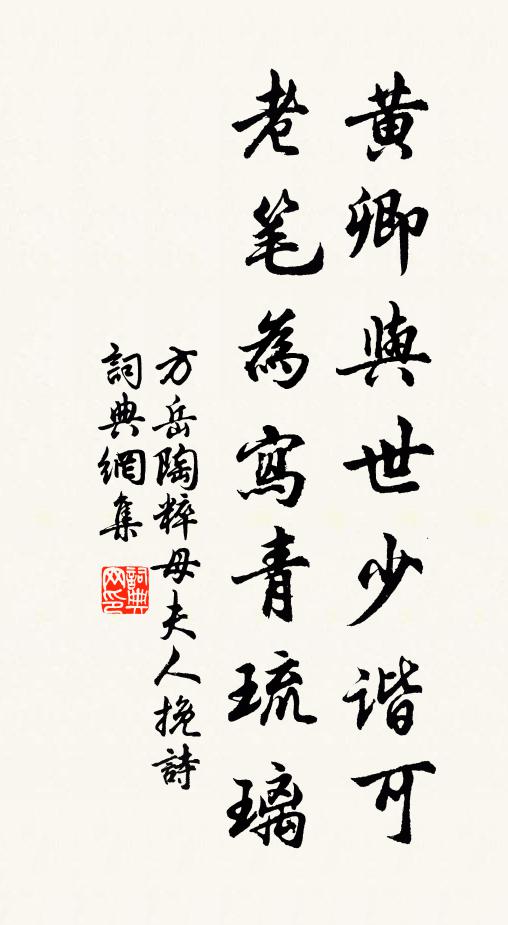 黃卿與世少谐可
老笔為寫青琉璃
方岳陶粹母夫人挽詩
詞典網集
詞典网印